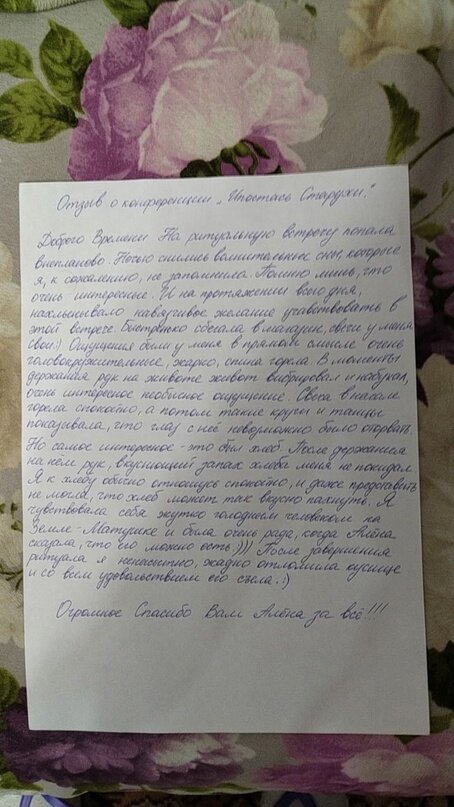 Отзыв о конференции „Ипостась Старухи."
Доброго Времени. На ритуальную встречу попала
внепланово. Ночью снились волнительные сны, которые
я, к сожалению, не запомнила. Помню лишь, что
очень интересные. И на протяжении всего дня,
нахлынывало, навязчивое желание участвовать в
этой встрече. Быстренько сбегала в магазин, свечи у меня
свои:) Ощущения были у меня в прямом смысле очень
головокружительные, жарко, спина горела. В моменты
держания рук на животе живот вибрировал и набухал,
очень интересное необычное ощущение. Свеча в начале
горела спокойно, а потом такие круги и танцы
показывала, что глаз с неё невозможно было оторвать.
Но самое интересное - это был хлеб. После держания
на нём рук, вкуснющий запах хлеба меня не покидал.
Я к хлебу обычно отношусь спокойно, и даже представить
не могла, что хлеб может так вкусно пахнуть. Я
чувствовала себя жутко голодным человеком на
Земле-Матушке и была очень рада, когда Алёна
сказала, что его можно есть.))) После завершения
ритуала я ненасытно, жадно отломила кусище
и со всем удовольствием его съела.:)
Огромное Спасибо Вам Алёна за всё!!!